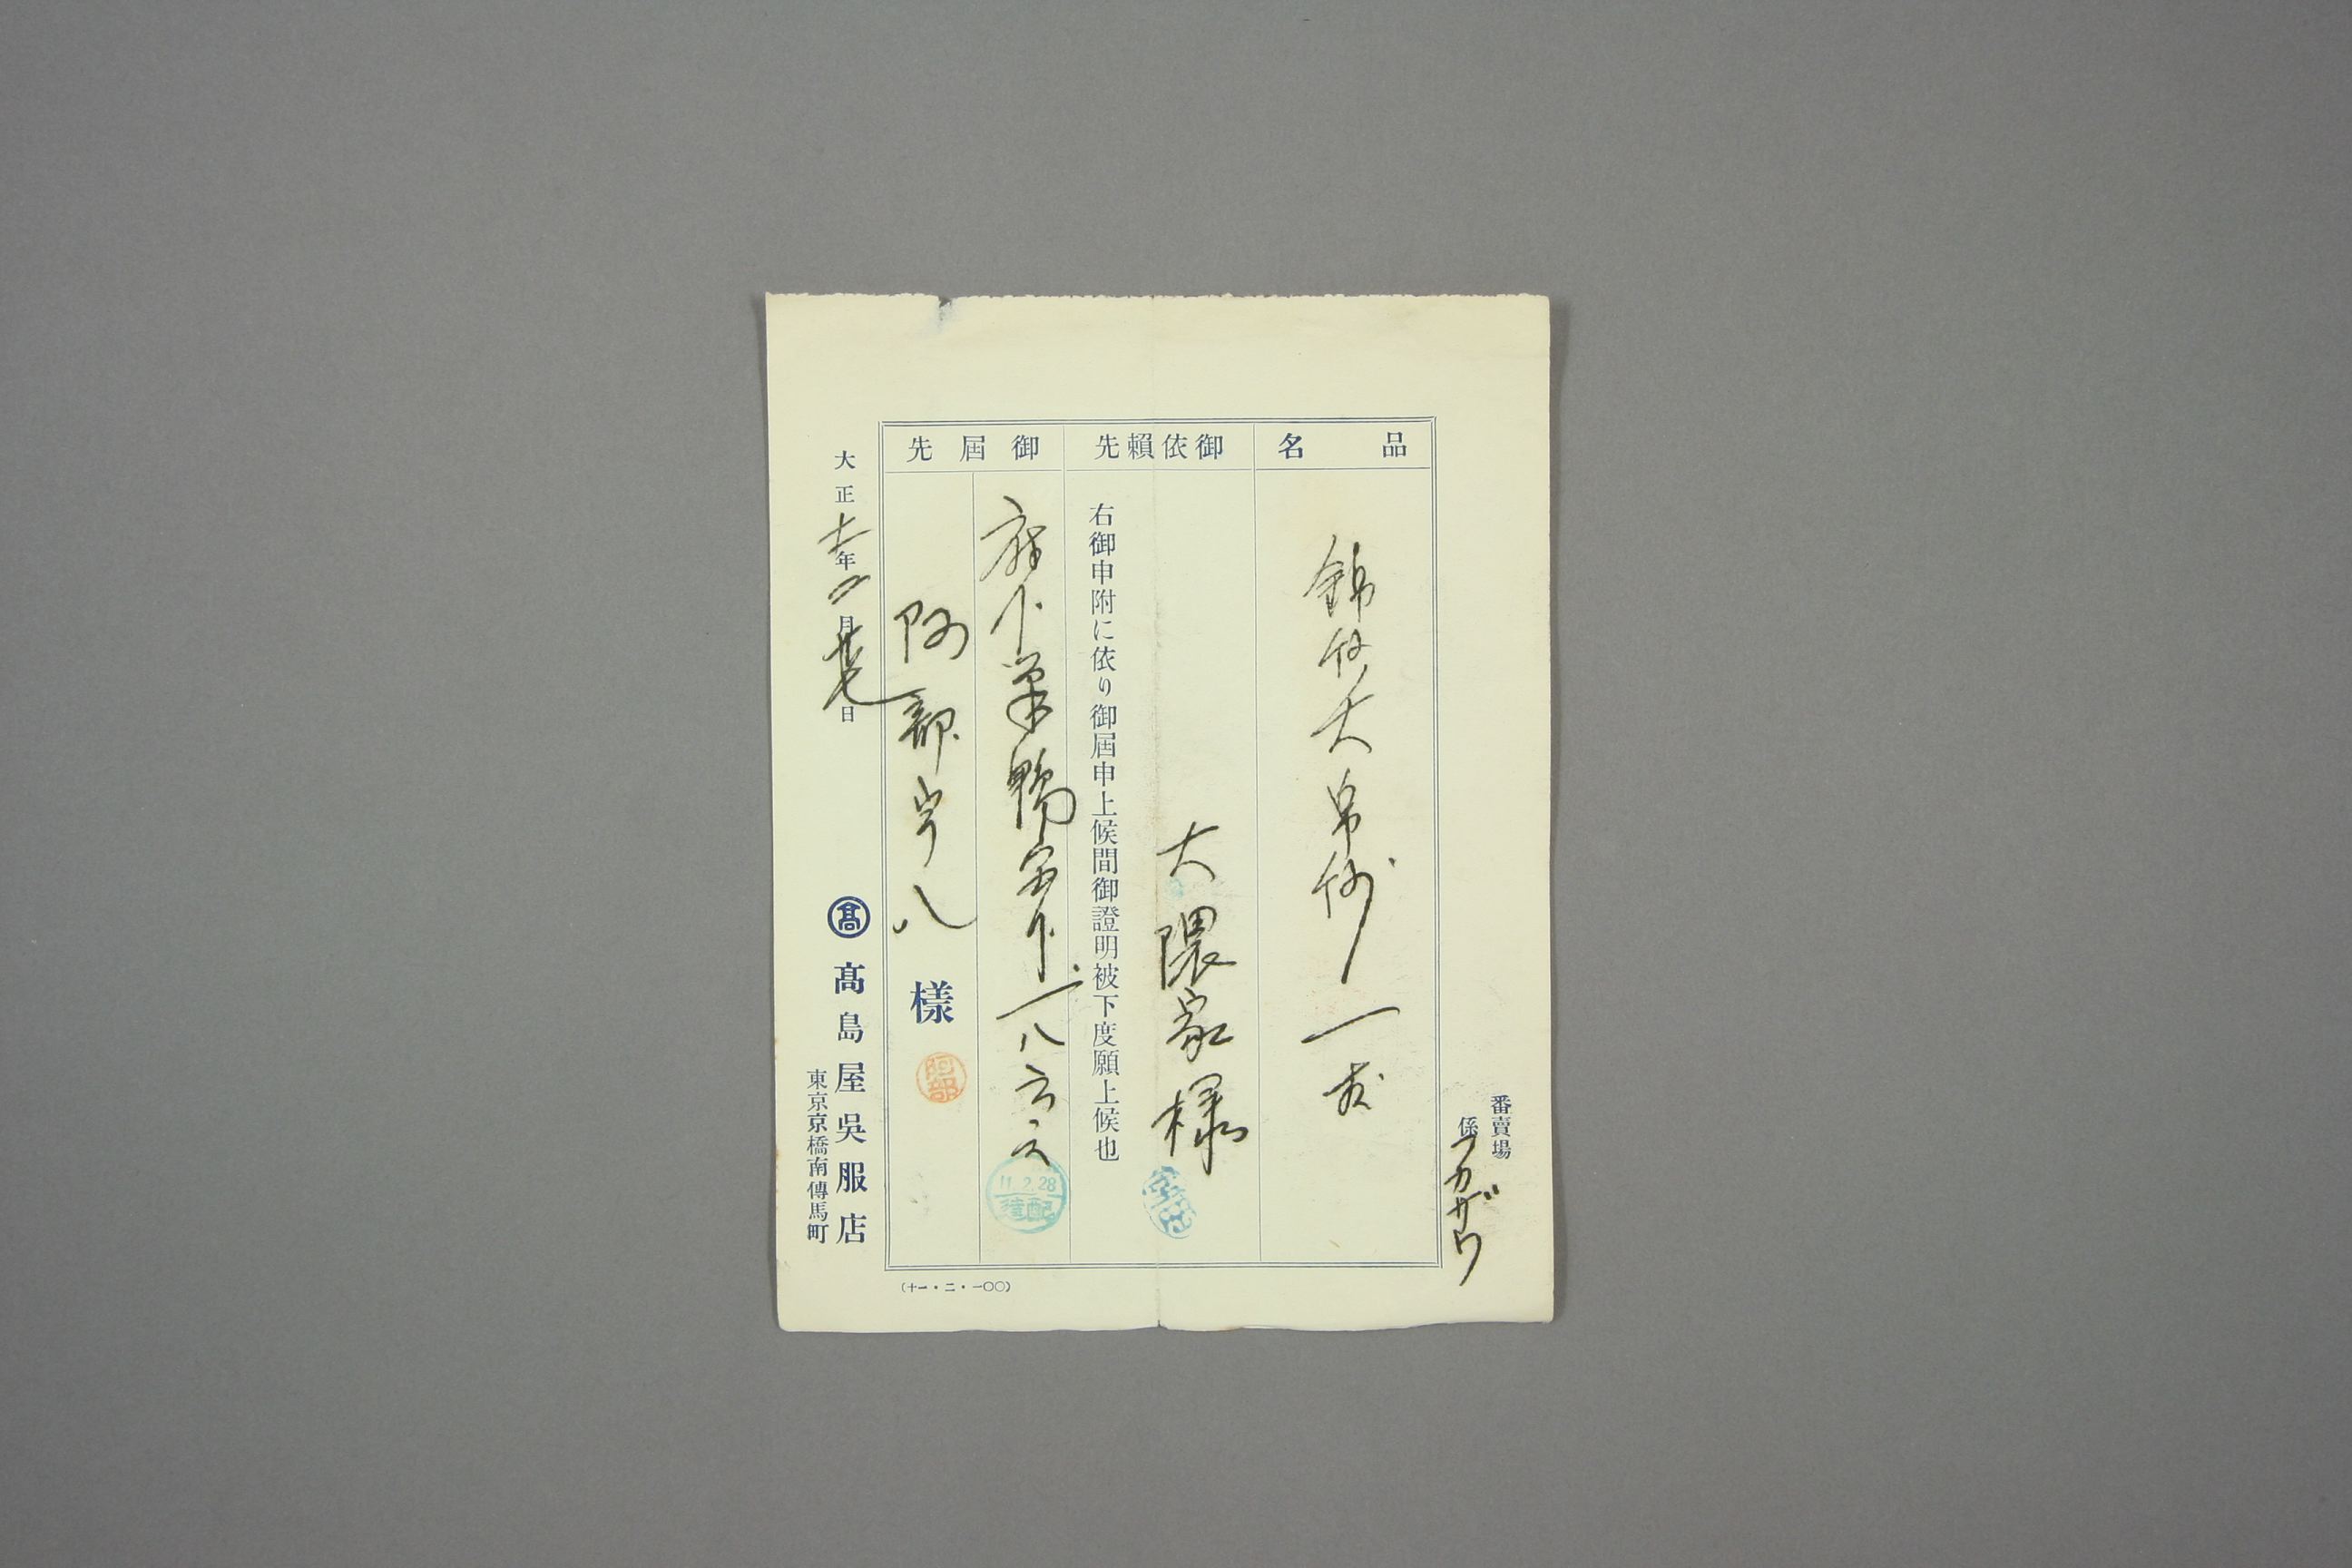 番賣場
係 フカザワ
品名
錦紗大帛紗 一枚
御依賴先
大隈家様
右御申附に依り御屆申上候間御證明被下度願上候也
御屆先
府下巣鴨宮下一八六六
11.2.28
配達
阿部宇八 樣
阿部
大正十一年二月廿七日
髙
髙島屋吳服店
東京京橋南傳馬町
(十一・二・一〇〇)